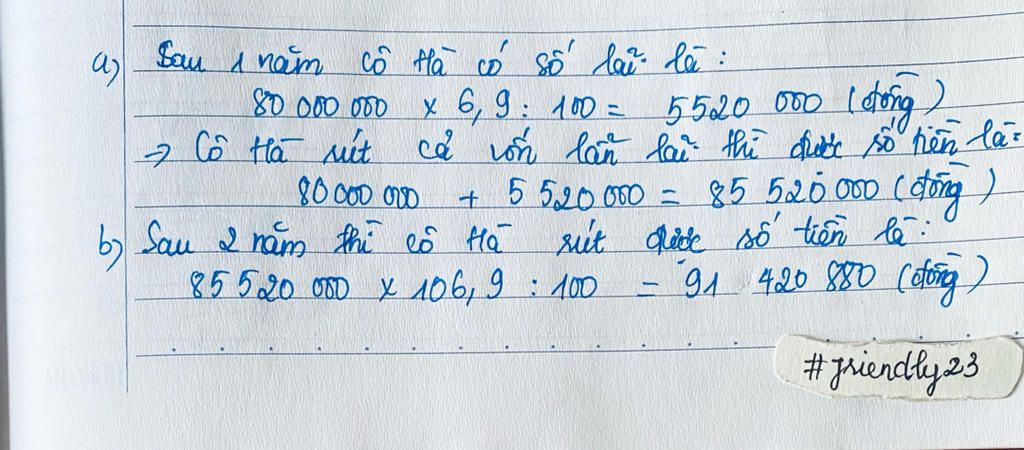 a) Sau 1 năm cô Hà có số lãi là :
80 000 000 x 6,9 : 100 = 5520 000 (đồng)
→ Cô Hà rút cả vốn lẫn lãi thì được số tiền là :
80 000 000 + 5 520 000 = 85 520 000 (đồng)
b) Sau 2 năm thì cô Hà rút được số tiền là :
85 520 000 x 106,9 : 100 = 91 420 880 (đồng)
#friendly23